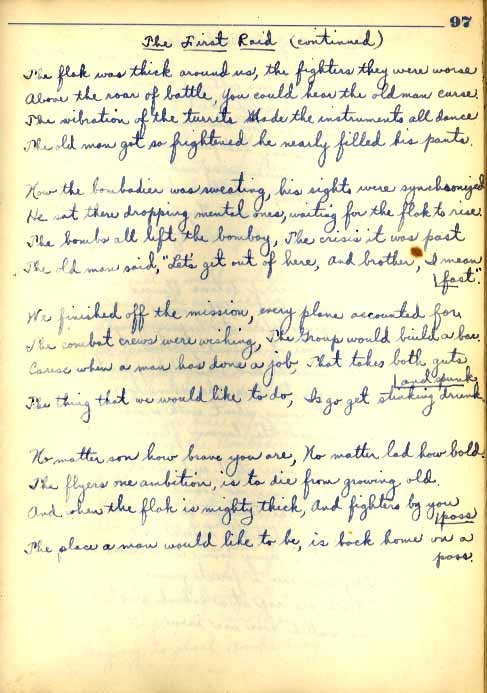 97
The First Raid (continued)
The flak was thick around us, the fighters they were worse
Above the roar of battle, you could hear the old man curse.
The vibration of the turrets Made the instruments all dance
The old man got so frightened he nearly filled his pants.
Now the bombadier was sweating, his sights were synchronized
He sat there dropping mental ones, waiting for the flak to rise.
The bombs all left the bombay, The crisis it was past
The old man said, "Let's get out of here, And brother, I mean
fast."
We finished off the mission, every plane accounted for,
The combat crews were wishing, The Group would build a bar.
Cause when a man has done a job, That takes both guts
and spunk
The thing that we would like to do, Is go get stinking drunk.
No matter son how brave you are, No matter lad how bold.
The flyers one ambition, is to die from growing old.
And when the flak is mighty thick, And fighters by you
pass
The place a man would like to be, is back home on a
pass.